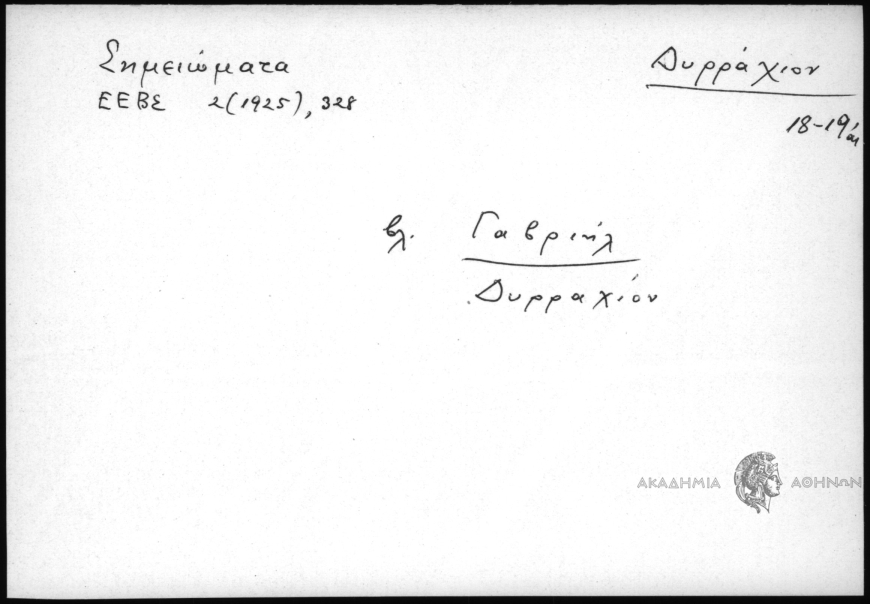 Σημειώματα
ΕΕΒΣ 2(1925), 328
Δυρράχιον
18-19 αι
βλ. Γαβριήλ
Δυρραχίον
ΑΚΑΔΗΜΙΑ ΑΘΗΝΩΝ